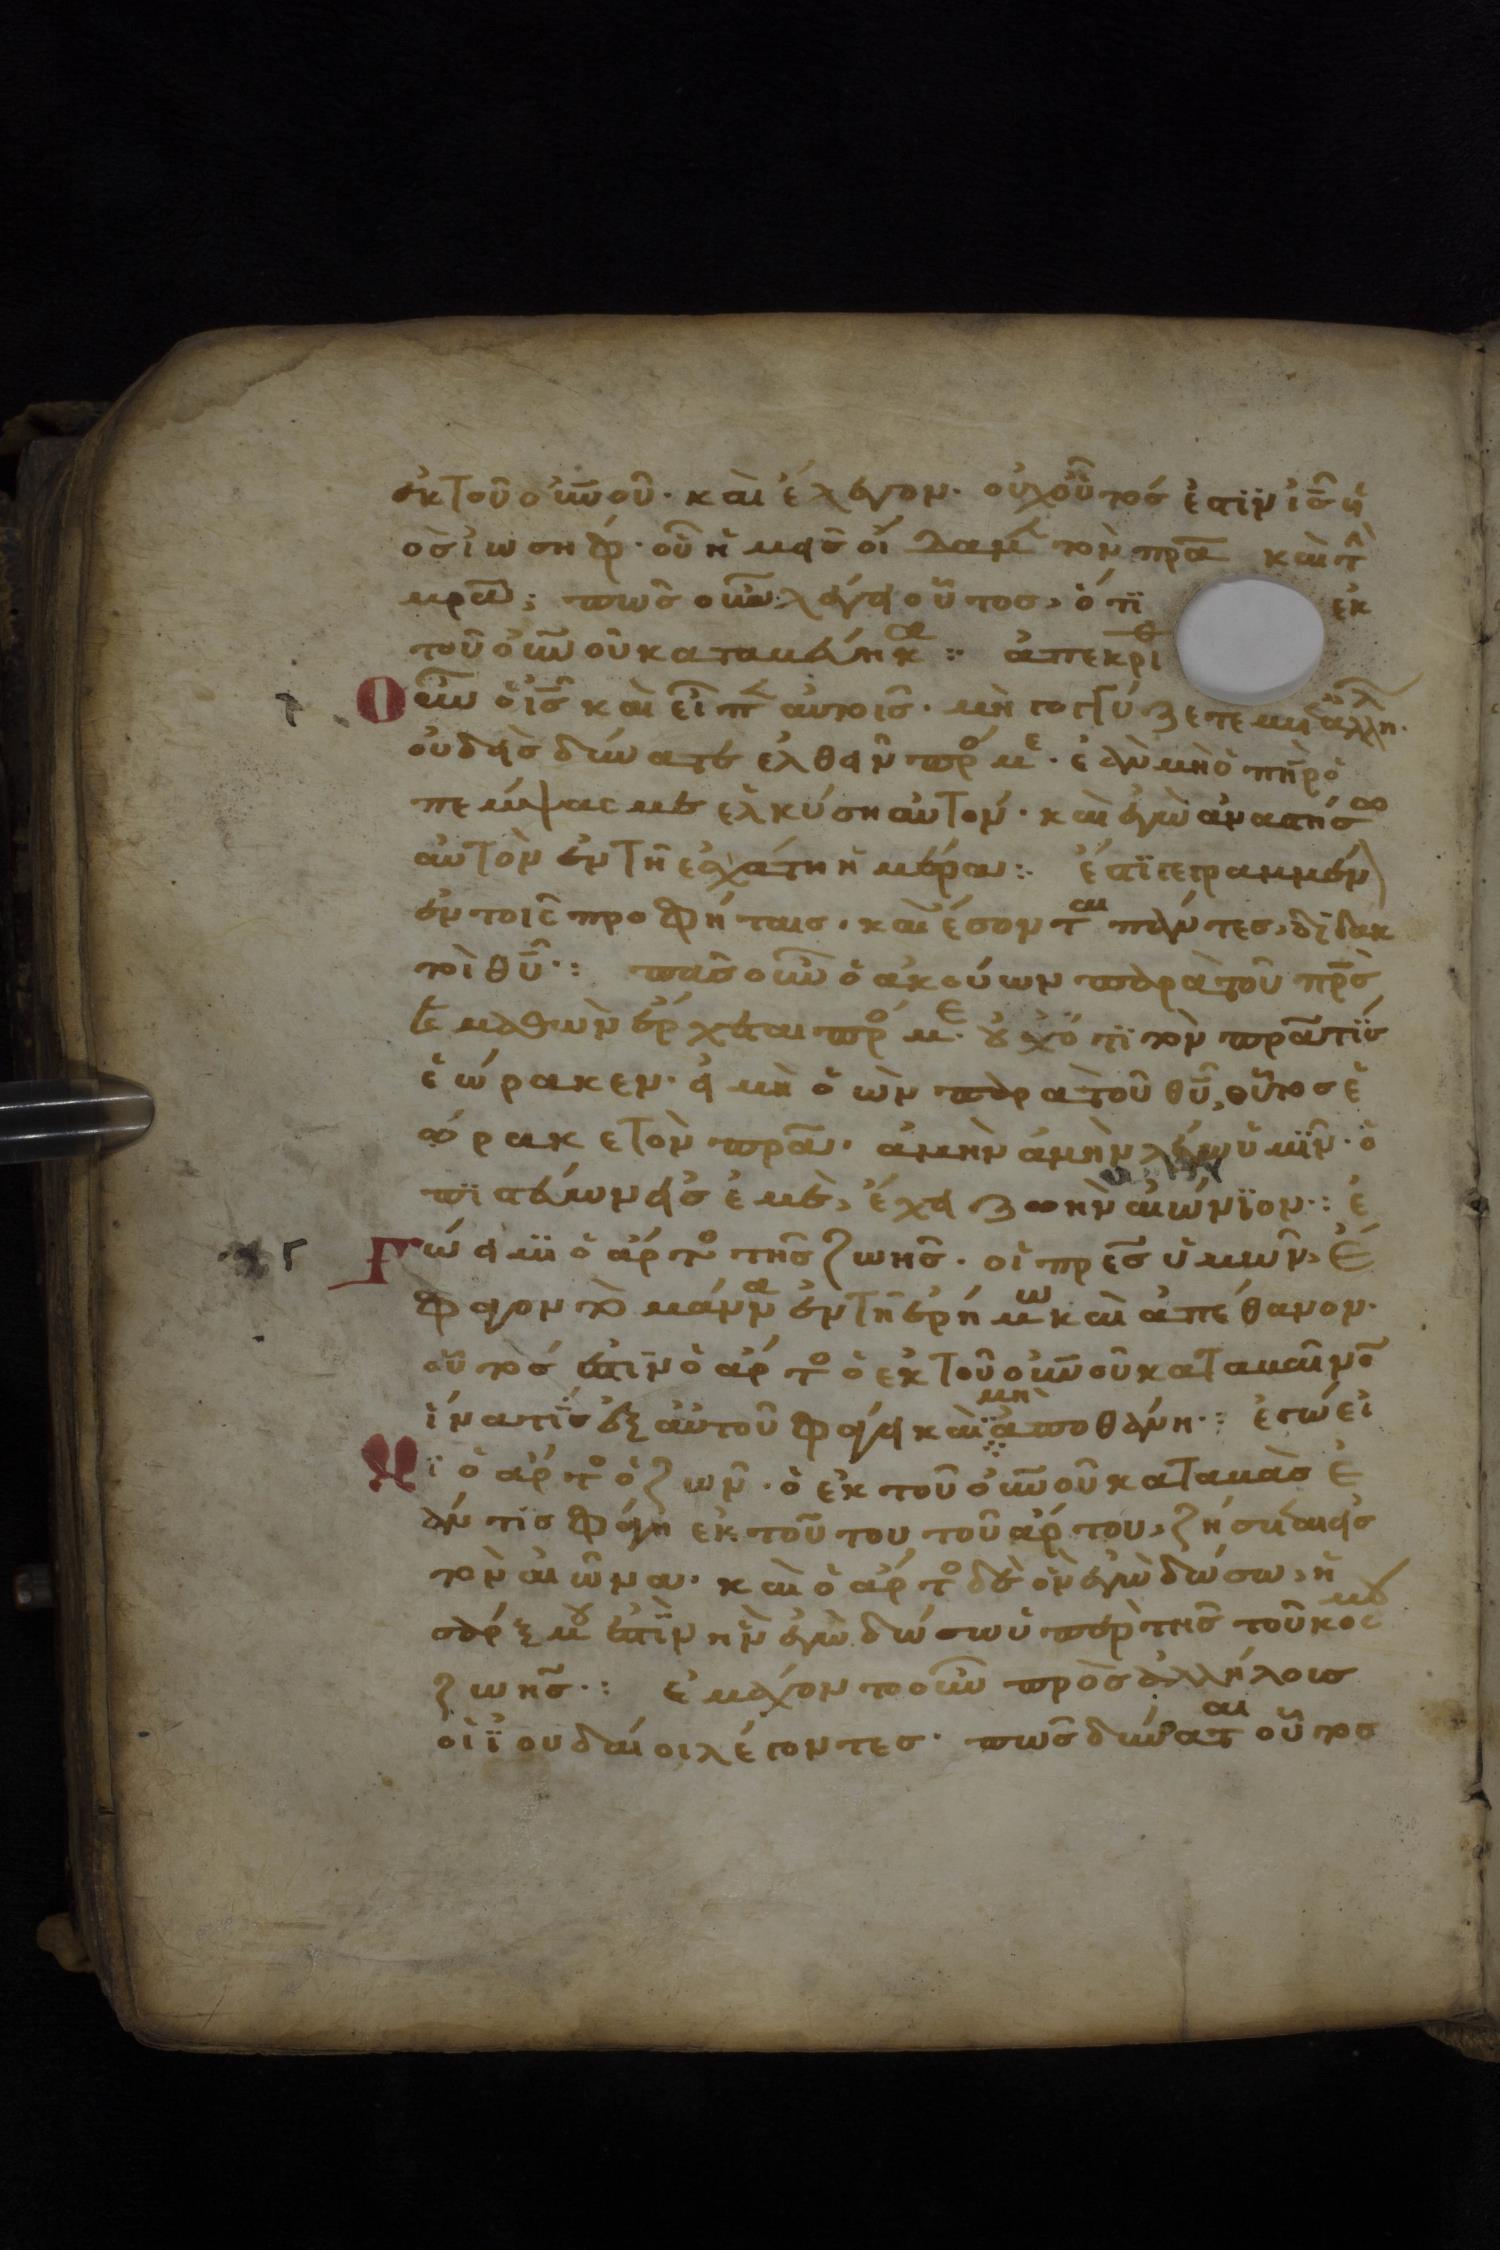 ἐκ τοῦ οὐνοῦ· καὶ ἔλεγον· οὐχ οὗτός ἐστϊν ἰς̅ ὁ υἱ
ὸς ἰωσηφ· οὗ ἡμεῖς οἴδαμ τὸν πρα̅ καὶ τὴν
μρα̅; πῶς οὖν λέγει οὗτος, ὅτϊ ἐκ
τοῦ οὐνοῦ καταβέβηκα: ἀπεκρίθ
Οὖν ὁ ις̅ καὶ εἶπεν αὐτοῖς· μὴ γογγύζετε μετ ἀλλήλ·
οὐδεὶς δύναται ἐλθεῖν πρό με· ἐὰν μὴ ὁ πη̅ρ ὁ
πεμψας με ἑλκύση αὐτόν· καὶ ἐγὼ ἀναστήσω
αὐτὸν ἐν τῆ ἐσχάτη ἡμέρα: ἔστϊ γεγραμμέν
ἐν τοῖς προφήταις· καὶ ἔσονται πάντες, διδακ
τοὶ θυ̅: πᾶς οὖν ὁ ἀκούων παρὰ τοῦ πρ̅ς
καὶ μαθὼν ἔρχεται πρό με· οὐχ ὅτϊ τὸν πρα̅ τϊς
ἑώρακεν· εἰ μὴ ὁ ὢν παρὰ τοῦ θυ̅, οὗτος ἑ
ώρακε τὸν πρα̅· ἀμὴν ἀμὴν λέγω ὑμῖν· ὁ
πϊστεύων εἰς ἐμὲ, ἔχει ζωὴν αἰώνϊον: ἐ
Γώ εἰμϊ ὁ ἄρτο τῆς ζωῆς· οἱ πρε̅ς ὑμῶν, ἔ
φαγον τὸ μάννα ἐν τῆ ἐρήμω καὶ ἀπέθανον·
οὗτός ἐστϊν ὁ ἄρτο ὁ ἐκ τοῦ οὐνοῦ καταβαίνο
ἵνα τϊς ἐξ αὐτοῦ φάγει καὶ μὴ ἀποθάνη: ἐγώ εἰ
Μϊ ὁ ἄρτο ὁ ζῶν· ὁ ἐκ τοῦ οὐνοῦ καταβὰς ἐ
άν τϊς φάγη ἐκ τούτου τοῦ ἄρτου, ζήσεται εἰς
τὸν αἰῶνα· καὶ ὁ ἄρτο δὲ ὃν ἐγὼ δώσω, ἡ
σάρξ μου ἐστϊν ἣν ἐγὼ δώσω ὑπὲρ τῆς τοῦ κοσμου
ζωῆς: ἐμάχοντο οὖν πρὸς ἀλλήλοις
οἱ ϊουδαίοι λέγοντες· πῶς δύναται οὗτος